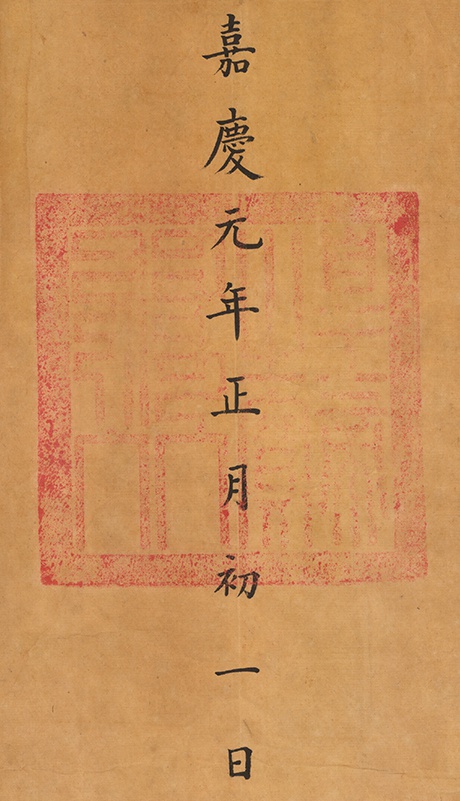 嘉慶元年正月初一日